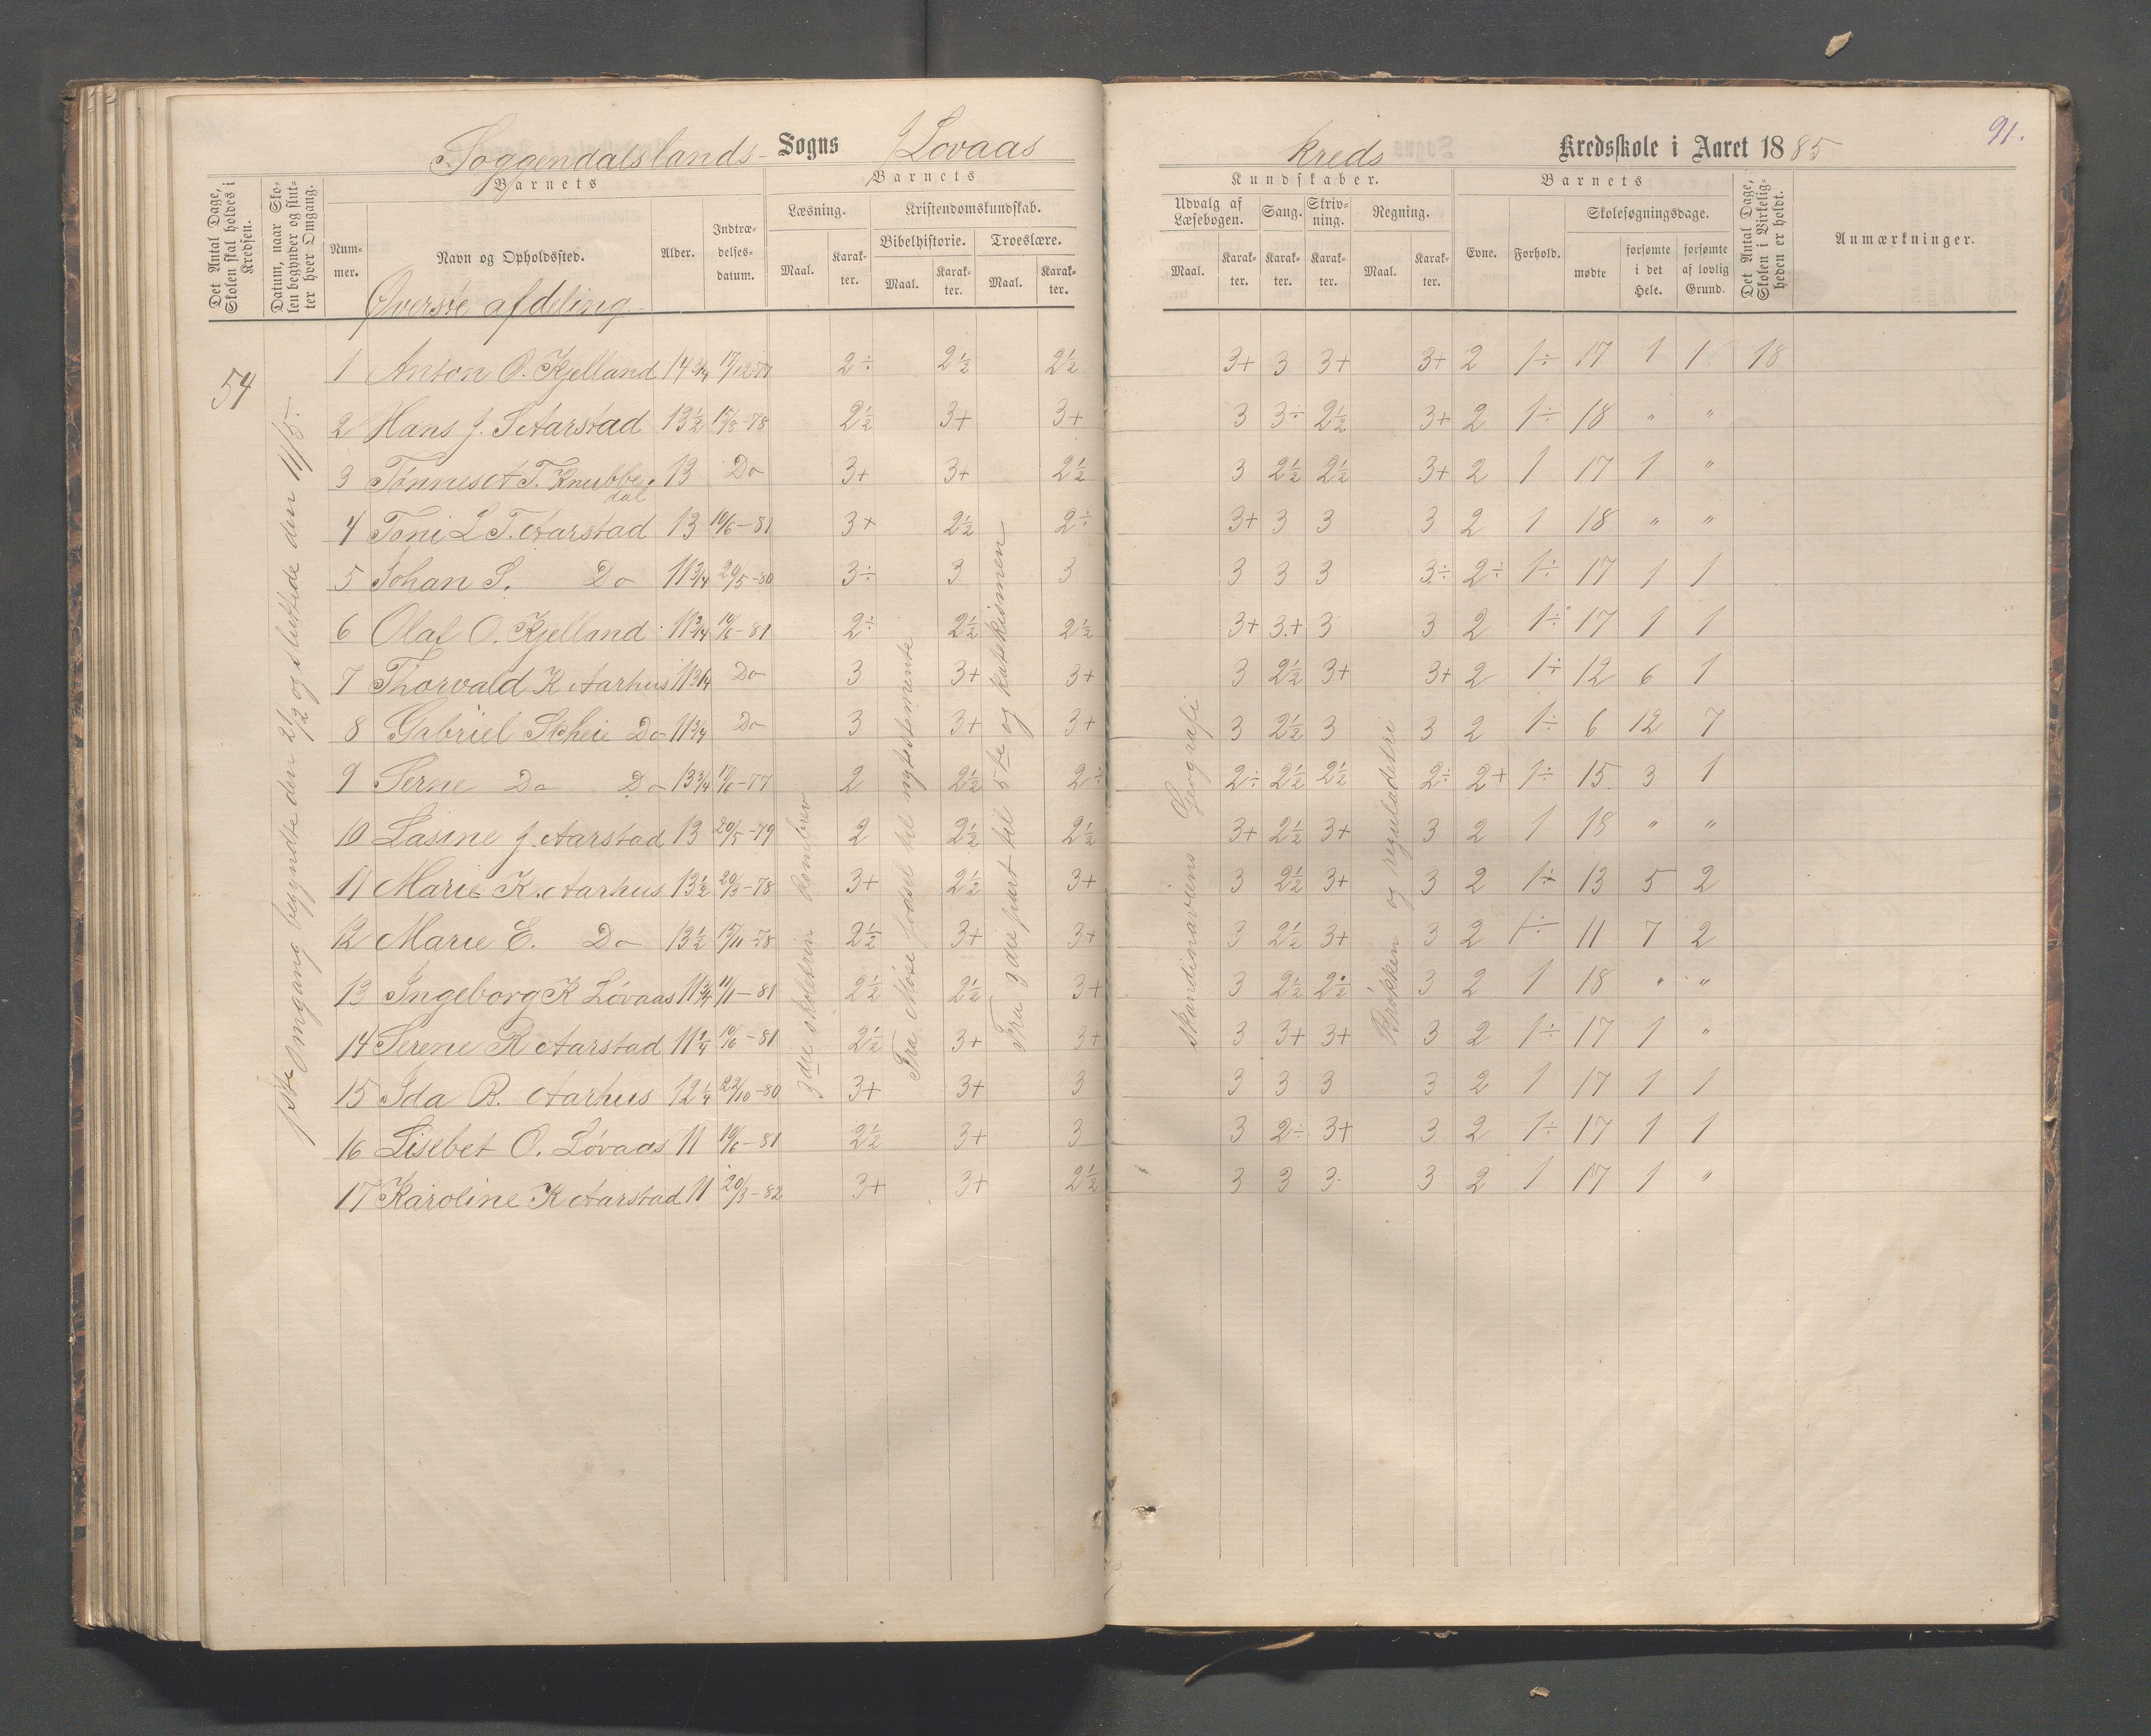 Soggendalslands Sogns Løvaas kreds Kredsskole i Aaret 1885
91.
Det Antal Dage, Skolen skal holdes i Kredsen.
Datum, naar Skolen begynder og slutter hver Omgang.
Barnets
Nummer.
Navn og Opholdssted.
Alder.
Indtrædelsesdatum.
Barnets
Læsning.
Maal.
Karakter.
Kristendomskundskab.
Bibelhistorie.
Maal.
Karakter.
Troeslære.
Maal.
Karakter.
Kundskaber.
Udvalg af Læsebogen.
Maal.
Karakter.
Sang.
Karakter.
Skrivning.
Karakter.
Regning.
Maal.
Karakter.
Barnets
Evne.
Forhold.
Skolesøgningsdage.
mødte
forsømte i det Hele.
forsømte af lovlig Grund.
Det Antal Dage, Skolen i Virkeligheden er holdt.
Anmærkninger.
Øverste afdeling
54
1ste Omgang begyndte den 21/2 og sluttede den 11/5.
3die skoletrin
Fra Mose fødsel til nytestemente
Fra 3die part til 5te og katekismen
Skandinaviens Geografi
Brøkken og reguladetri
1 Anton O. Kjelland 14 3/4 17/12-77 2÷ 2½ 2½ 3+ 3 3+ 3+ 2 1÷ 17 1 1 18
2 Hans J. S Aarstad 13½ 15/8-78 2½ 3+ 3+ 3 3÷ 2½ 3+ 2 1÷ 18 " "
3 Tønnes A T. Knubbedal 13 Do 3+ 3+ 2½ 3 2½ 2½ 3+ 2 1 17 1 "
4 Toni L T. Aarstad 13 10/6-81 3+ 2½ 2÷ 3+ 3 3 3 2 1 18 " "
5 Johan S. Do 11 3/4 20/5-80 3÷ 3 3 3 3 3 3÷ 2÷ 1÷ 17 1 1
6 Olaf O. Kjelland 11 3/4 10/6-81 2÷ 2½ 2½ 3+ 3+ 3 3 2 1÷ 17 1 1
7 Thorvald K Aarhus 11 3/4 Do 3 3+ 3+ 3 2½ 3+ 3+ 2 1÷ 12 6 1
8 Gabriel Skheie Do 11 3/4 Do 3 3+ 3+ 3 2½ 3 3 2 1÷ 6 12 7
9 Serne Do Do 13 3/4 17/6-77 2 2½ 2÷ 2÷ 2½ 2½ 2÷ 2+ 1÷ 15 3 1
10 Lasine J. Aarstad 13 20/5-79 2 2½ 2½ 3+ 2½ 3+ 3 2 1 18 " "
11 Marie K. Aarhus 13½ 20/3-78 3+ 2½ 3+ 3 2½ 3+ 3 2 1÷ 13 5 2
12 Marie E. Do 13½ 15/11-78 2½ 3+ 3+ 3 2½ 3+ 3 2 1÷ 11 7 2
13 Ingeborg K Løvaas 11 3/4 11/11-81 2½ 2½ 3+ 3 2½ 2½ 3 2 1 18 " "
14 Serene R Aarstad 11 1/4 10/6-81 2½ 3+ 3+ 3 3+ 3+ 3 2 1÷ 17 1 "
15 Ida B. Aarhus 12 1/4 22/10-80 3+ 3+ 3 3 3 3 3 2 1 17 1 1
16 Lisebet O. Løvaas 11 10/6-81 2½ 3+ 3 3 2÷ 3+ 3 2 1÷ 17 1 1
17 Karoline K Aarstad 11 20/3-82 3+ 3+ 2½ 3 3 3 3 2 1 17 1 "